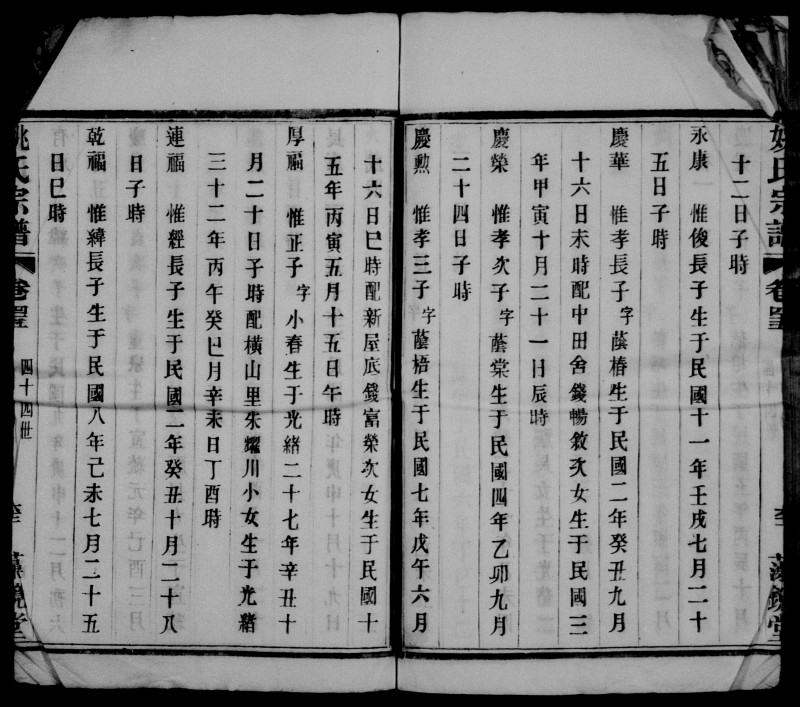 姚氏宗譜 卷
藻鏡堂
十二日子時
永康 惟俊長子生于民國十一年壬戌七月二十
五日子時
慶華 惟孝長子字蔭椿生于民國二年癸丑九月
十六日未時配中田舍錢暢敘次女生于民國三
年甲寅十月二十一日辰時
慶榮 惟孝次子字蔭棠生于民國四年乙卯九月
二十四日子時
慶勲 惟孝三子字蔭梧生于民國七年戊午六月
十六日巳時配新屋底錢富榮次女生于民國十
五年丙寅五月十五日午時
厚福 惟正子字小春生于光緒二十七年辛丑十
月二十日子時配橫山里朱耀川小女生于光緒
三十二年丙午癸巳月辛未日丁酉時
連福 惟經長子生于民國二年癸丑十月二十八
日子時
乾福 惟緯長子生于民國八年己未七月二十五
日巳時
姚氏宗譜 卷 四十四世
藻鏡堂